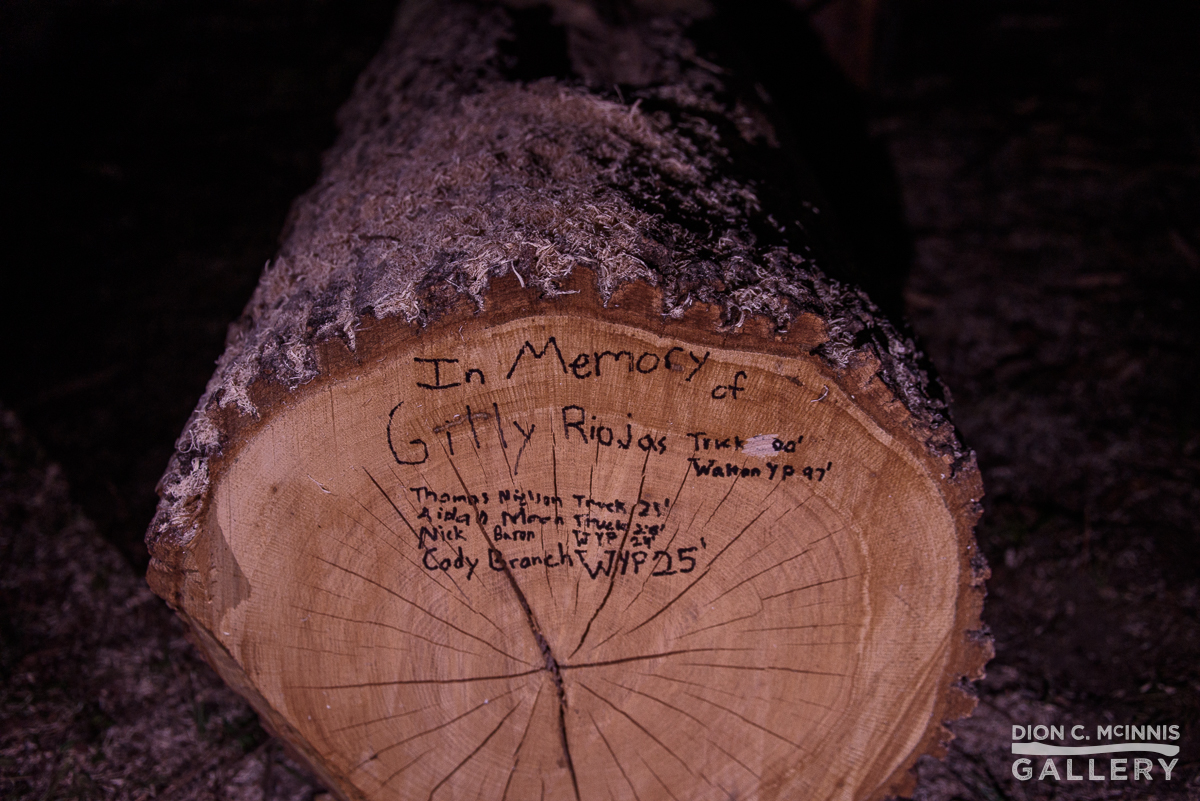 In Memory of
Gilly Riojas Truck 00'
Walton YP 97'
Thomas Truck
Aidan Moon Truck
Nick Baron WYP 24'
Cody Branch WYP 25'
DION C. McINNIS
GALLERY